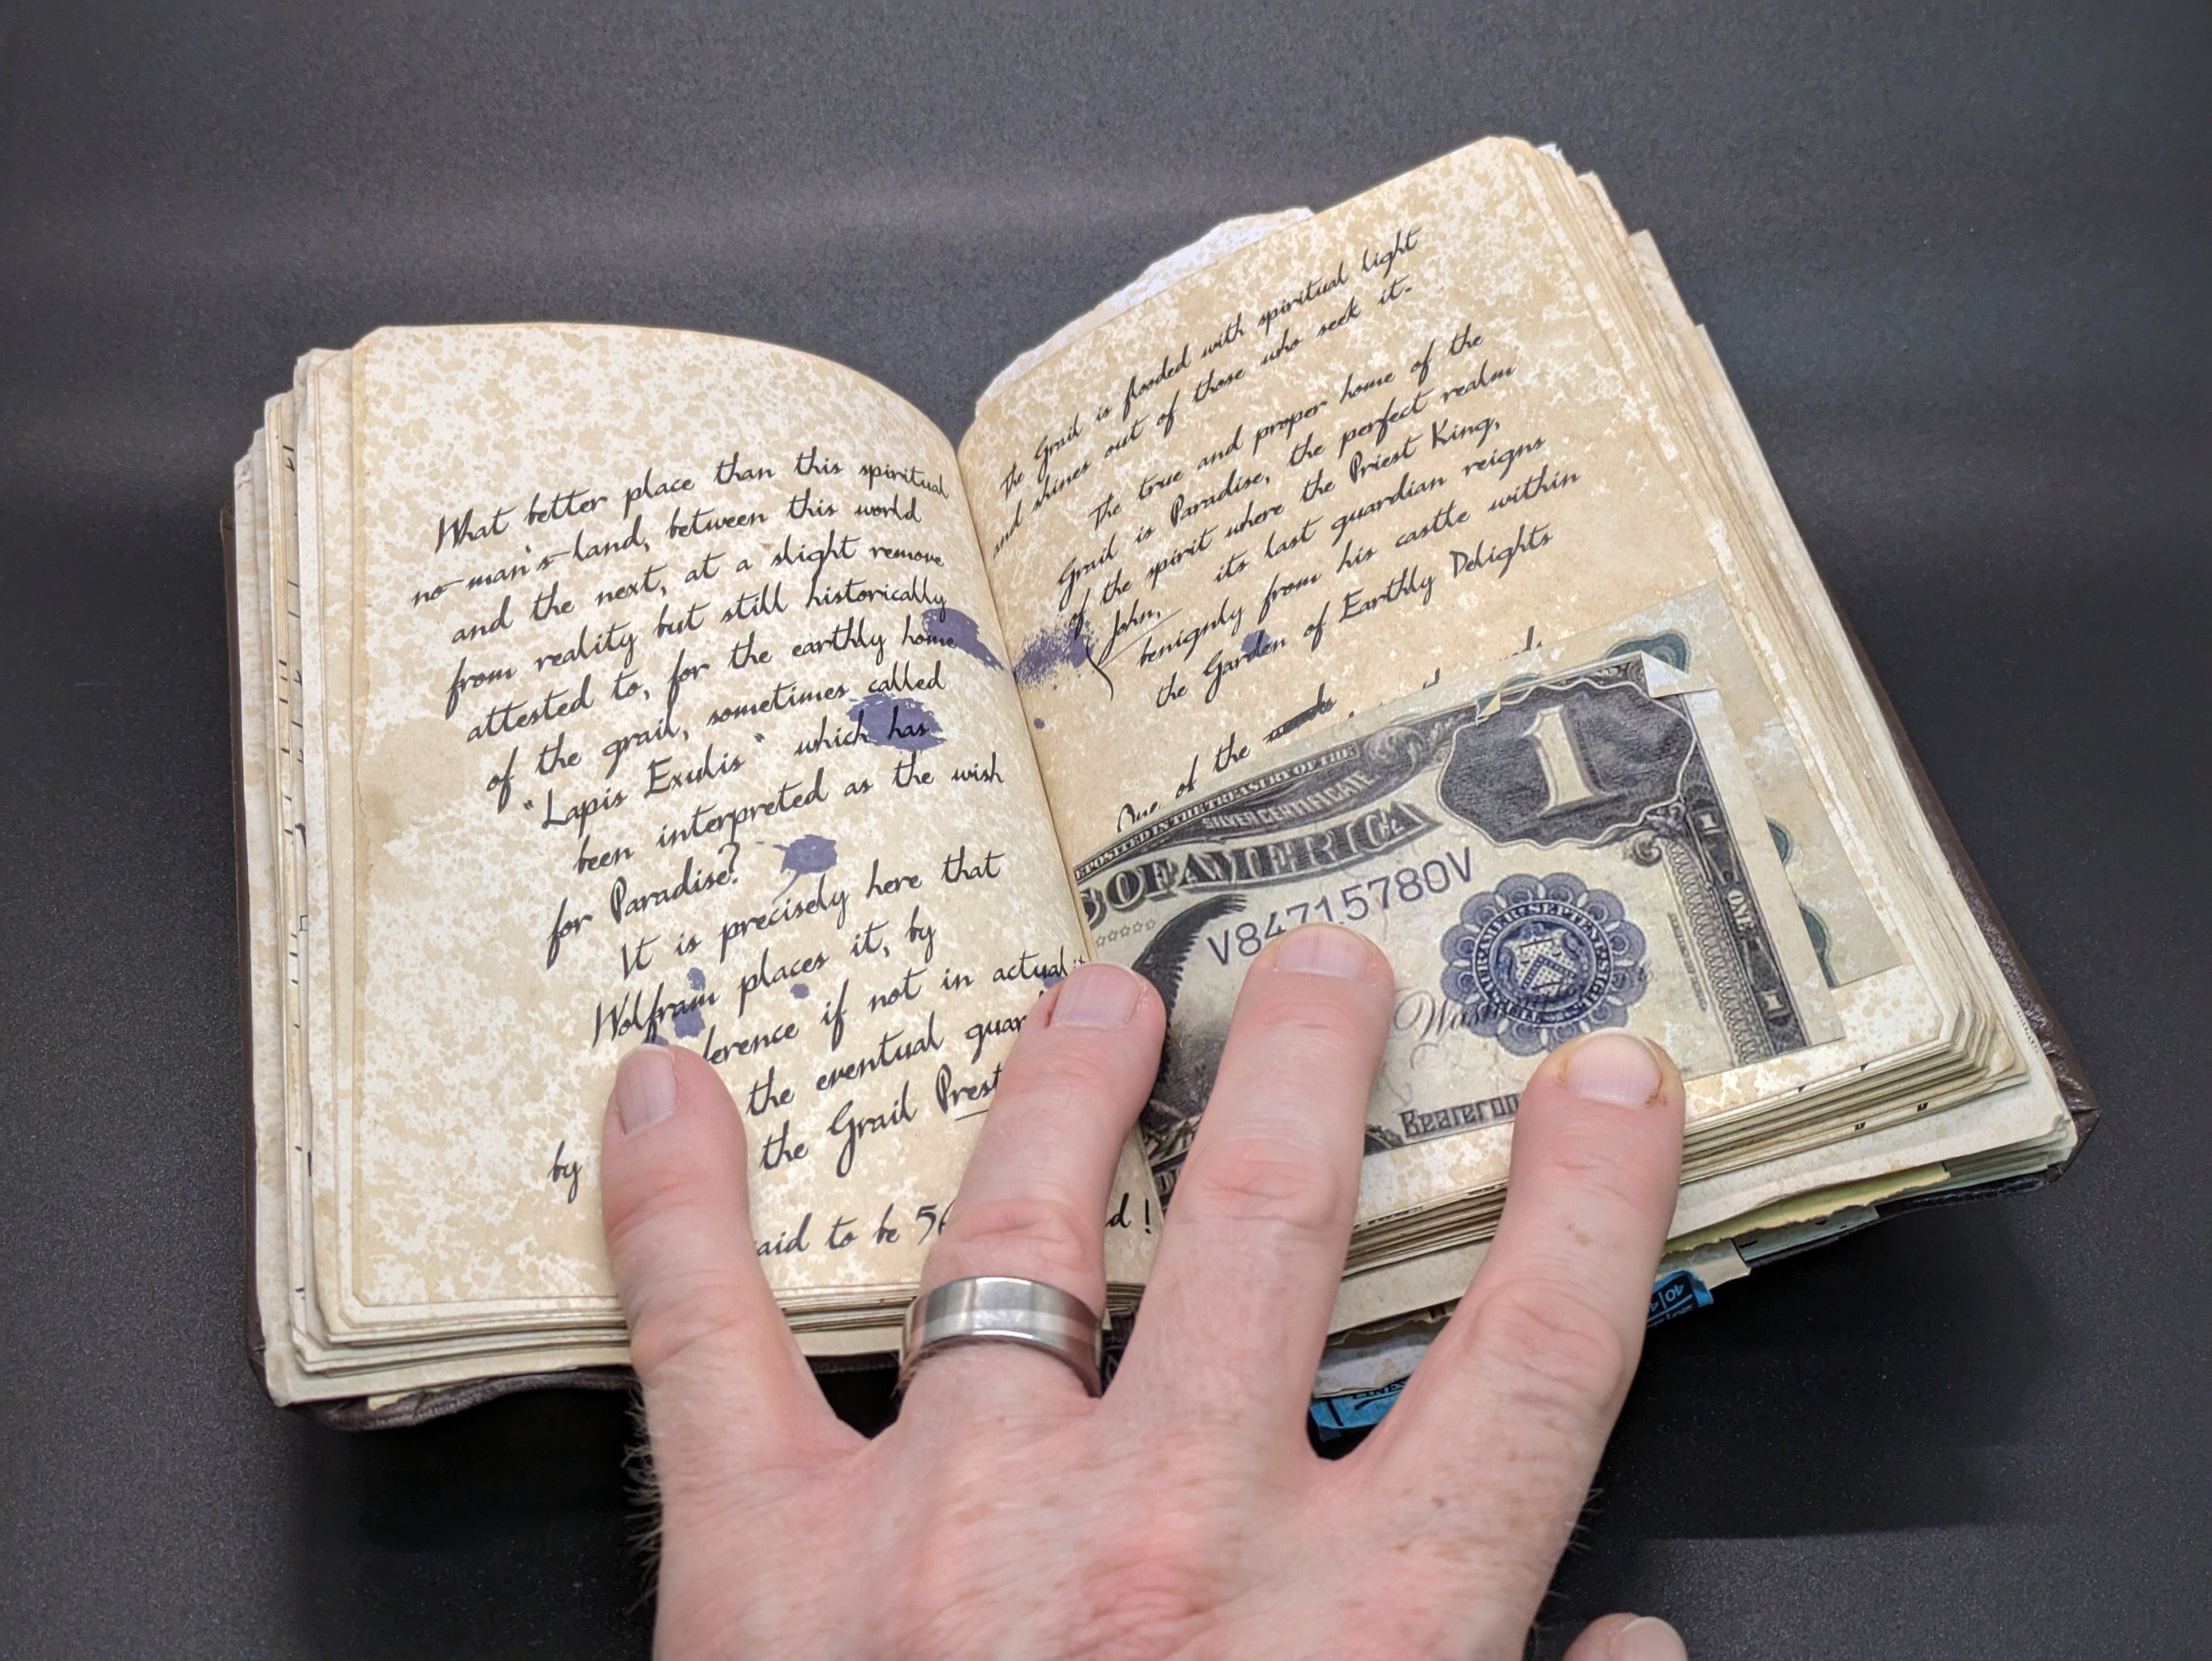 What better place than this spiritual
no-man's-land, between this world
and the next, at a slight remove
from reality but still historically
attested to, for the earthly home
of the grail, sometimes called
"Lapis Exulis" which has
been interpreted as the wish
for Paradise?
It is precisely here that
Wolfram places it, by
if not in
the eventual
by the Grail
to be
The Grail is flooded with spiritual light
and shines out of those who seek it.
The true and proper home of the
Grail is Paradise, the perfect realm
of the spirit where the Priest King,
John, its last guardian reigns
benignly from his castle within
the Garden of Earthly Delights
One of the
IN THE TREASURY OF THE
SILVER CERTIFICATE
OF AMERICA
1
V84715780V
ONE
1
1